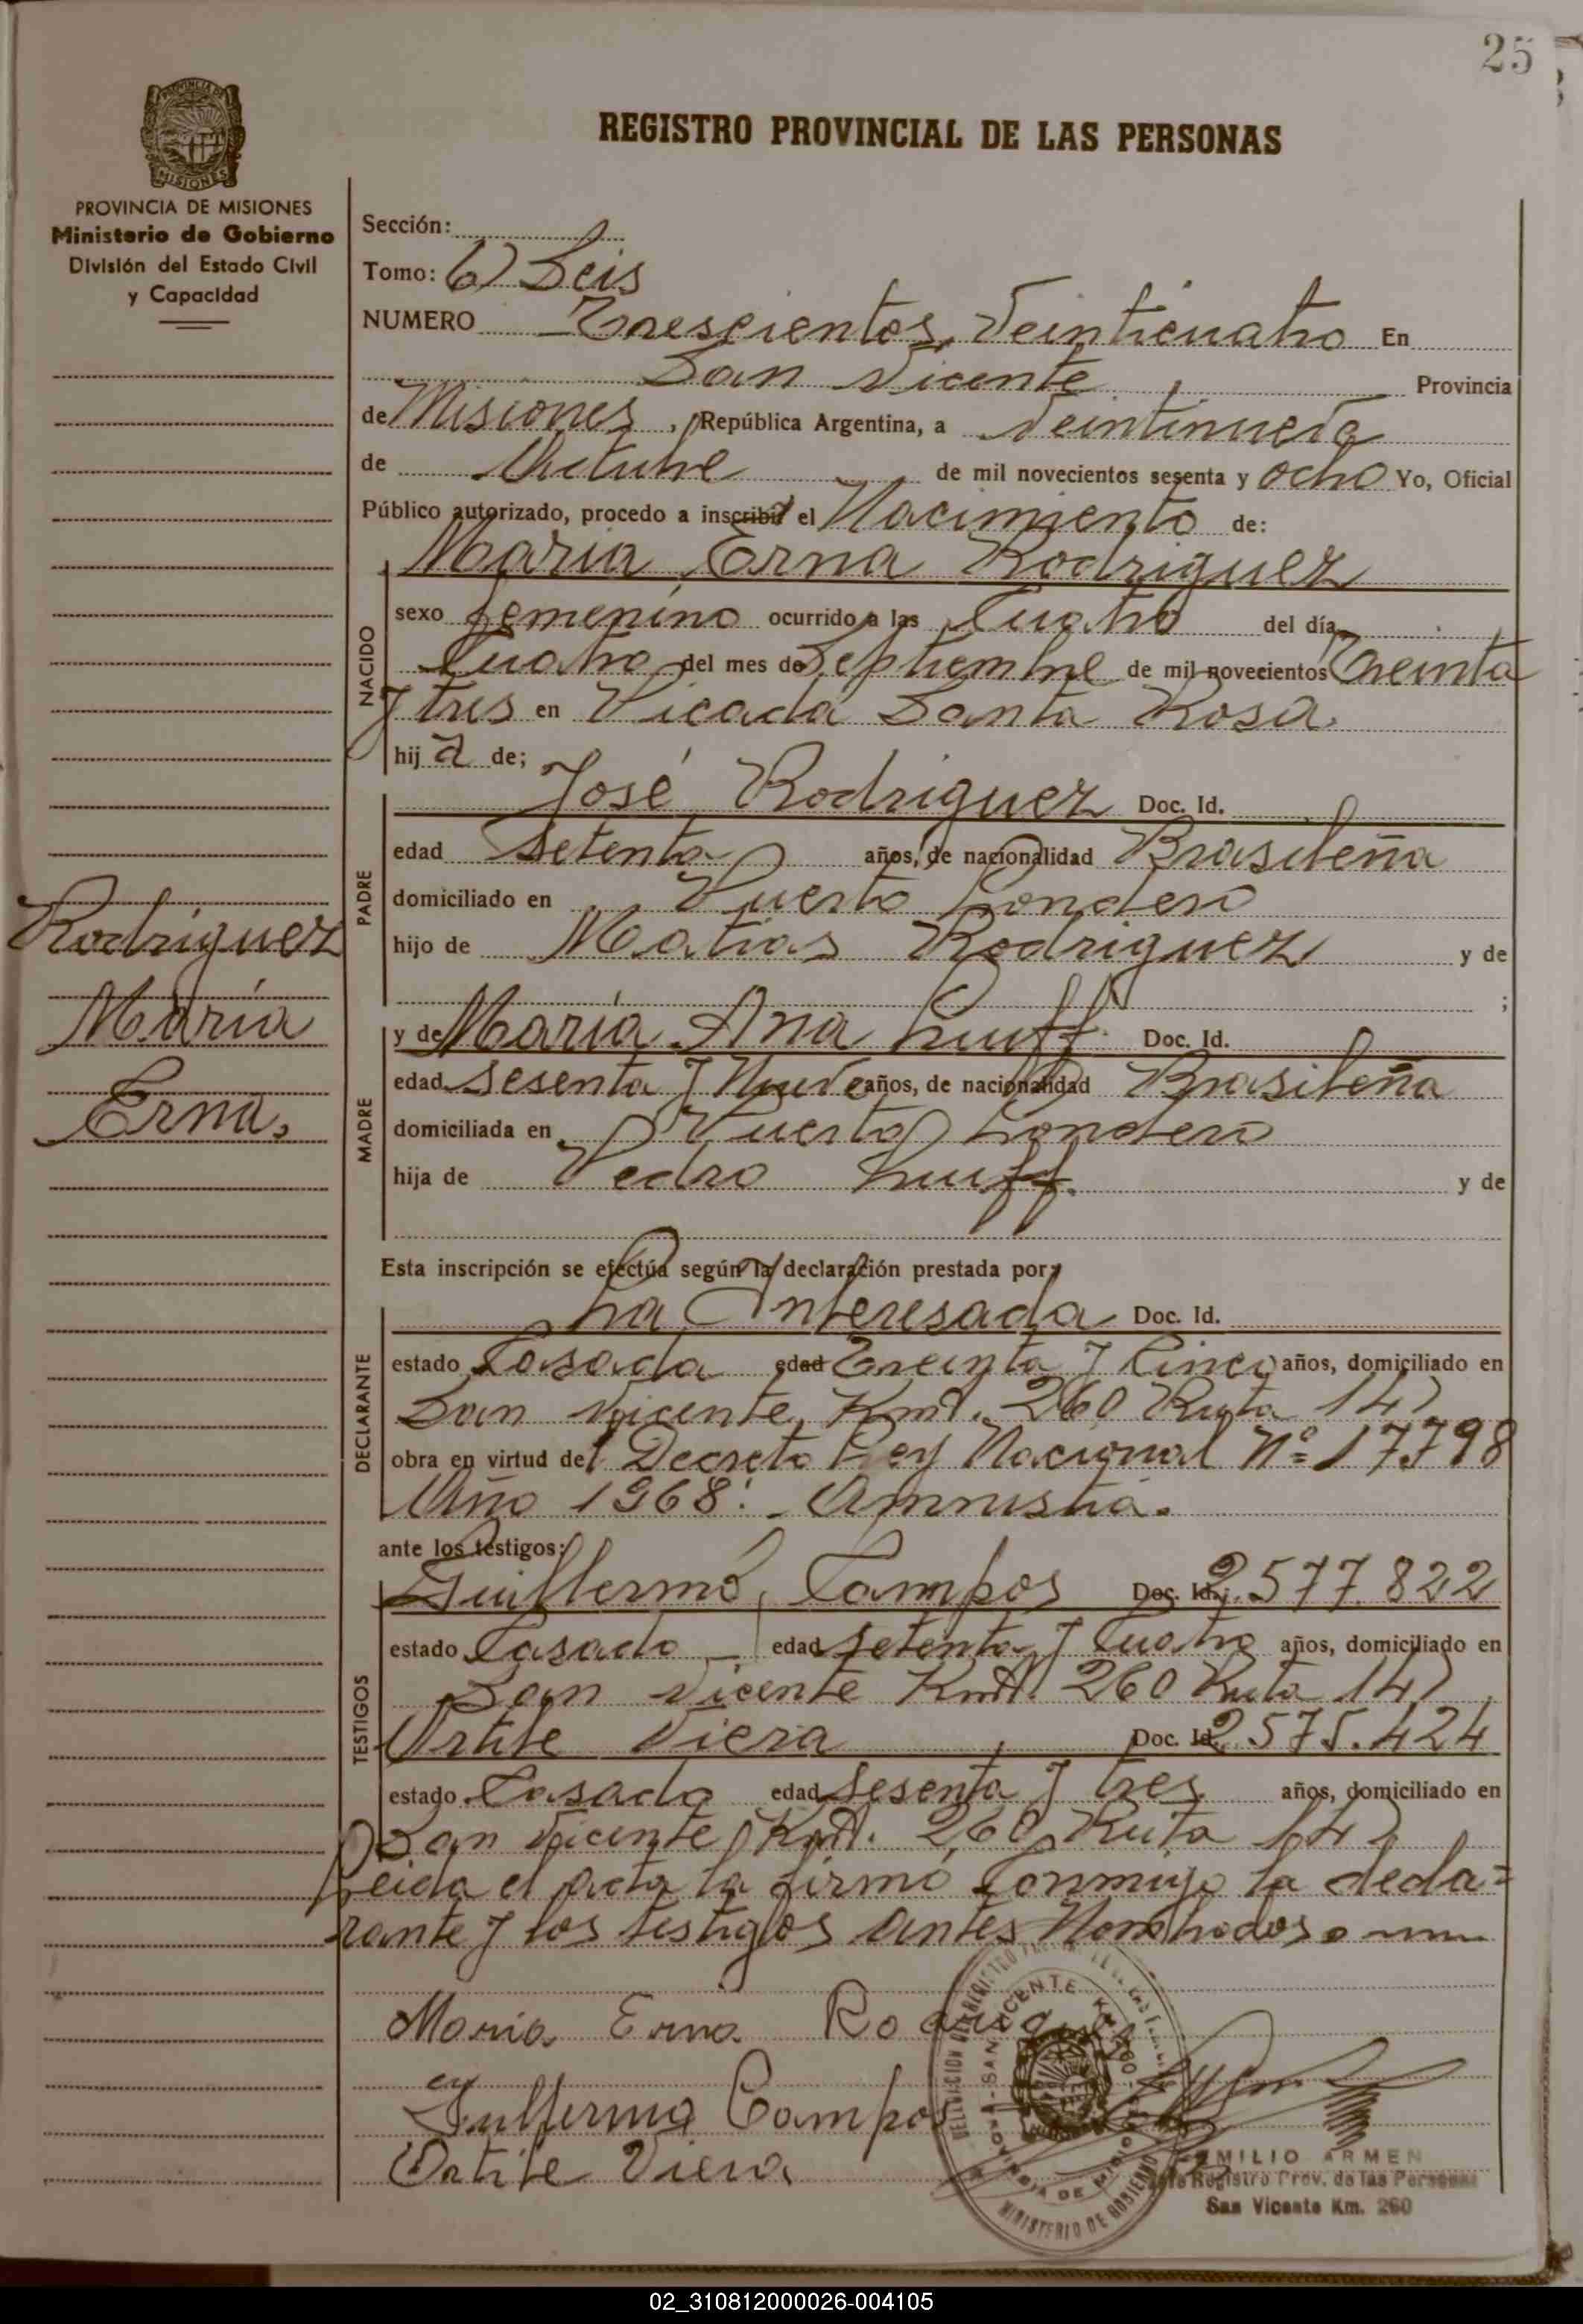 25
REGISTRO PROVINCIAL DE LAS PERSONAS
PROVINCIA DE MISIONES
Ministerio de Gobierno
División del Estado Civil
y Capacidad
Sección:
Tomo: 6) Seis
NUMERO Trescientos Veinticuatro En
San Vicente Provincia
de Misiones, República Argentina, a Veintinueve
de Octubre de mil novecientos sesenta y ocho Yo, Oficial
Público autorizado, procedo a inscribir el Nacimiento de:
María Erna Rodriguez
NACIDO
sexo femenino ocurrido a las Cuatro del día
Cuatro del mes de Septiembre de mil novecientos Treinta
y tres en Picada Santa Rosa.
hij a de;
PADRE
José Rodriguez Doc. Id.
edad Setenta años, de nacionalidad Brasileña
domiciliado en Puerto Londero
hijo de Matias Rodriguez y de
;
Rodriguez
María
Erna.
MADRE
y de María Ana Luff Doc. Id.
edad Sesenta y Nueve años, de nacionalidad Brasileña
domiciliada en Puerto Londero
hija de Pedro Luff. y de
Esta inscripción se efectúa según la declaración prestada por:
DECLARANTE
La Interesada Doc. Id.
estado Casada edad Treinta y Cinco años, domiciliado en
San Vicente, Kmt. 260 Ruta 14)
obra en virtud del Decreto Ley Nacional Nº 17798
Año 1968. Amnistía.
ante los testigos:
TESTIGOS
Guillermo Campos Doc. Id. 2.577.822
estado Casado edad Setenta y Cuatro años, domiciliado en
San Vicente Kmt. 260 Ruta 14)
Ortile Viera Doc. Id. 2.575.424
estado Casado edad Sesenta y tres años, domiciliado en
San Vicente Kmt. 260 Ruta 14)
Leida el acta la firmó Conmigo la decla=
rante y los testigos antes Nombrados.
María Erna Rodriguez
Guillermo Campos
Ortile Viera
SAN VICENTE KM. 260
PROVINCIA DE MISIONES
MINISTERIO DE GOBIERNO
EMILIO ARMEN
Registro Prov. de las Personas
San Vicente Km. 260
02_310812000026-004105